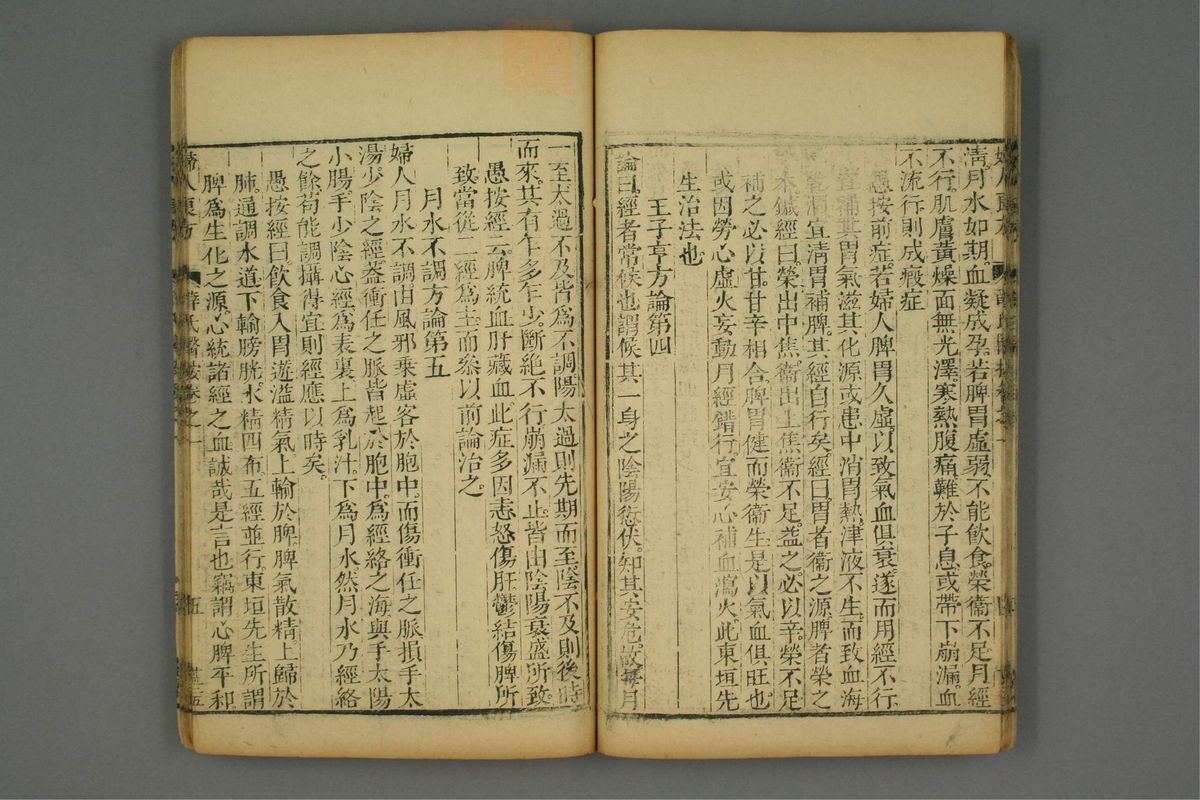 清。月水如期。血凝成孕。若脾胃虛弱。不能飲食。榮衞不足。月經
不行。肌膚黃燥。面無光澤。寒熱腹痛。難於子息。或帶下崩漏。血
不流行則成瘕症
愚按前症。若婦人脾胃久虛。以致氣血俱衰。遂而用經不行
宜補其胃氣。滋其化源。或患中消胃熱。津液不生。而致血海
宜清胃補脾。其經自行矣。經曰。胃者衞之源。脾者榮之
本。鍼經曰。榮出中焦。衞出上焦。衞不足。益之必以辛。榮不足
補之必以甘。甘辛相合。脾胃健而榮衞生。是以氣血俱旺也
或因勞心。虛火妄動。月經錯行。宜安心補血瀉火。此東垣先
生治法也
王子亨方論第四
論曰。經者常候也。謂候其一身之陰陽愆伏。知其安危。故每月
一至。太過不及。皆爲不調。陽太過則先期而至。陰不及則後時
而來。其有乍多乍少。斷絶不行。崩漏不止。皆由陰陽衰盛所致
愚按經云。脾統血。肝藏血。此症多因恚怒傷肝。鬱結傷脾所
致。當從二經爲主。而叅以前論治之。
月水不調方論第五
婦人月水不調。由風邪乘虛客於胞中。而傷衝任之脈。損手太
陽。少陰之經。葢衝任之脈皆起於胞中。爲經絡之海。與手太陽
小腸。手少陰心經爲表裏。上爲乳汁。下爲月水。然月水乃經絡
之餘。苟能調攝得宜。則經應以時矣。
愚按經曰。飲食入胃。遊溢精氣。上輸於脾。脾氣散精。上歸於
肺。通調水道。下輸膀胱。水精四布。五經並行。東垣先生所謂
脾爲生化之源。心統諸經之血。誠哉是言也。竊謂心脾平和
婦人良方
薛氏醫按卷之一
五